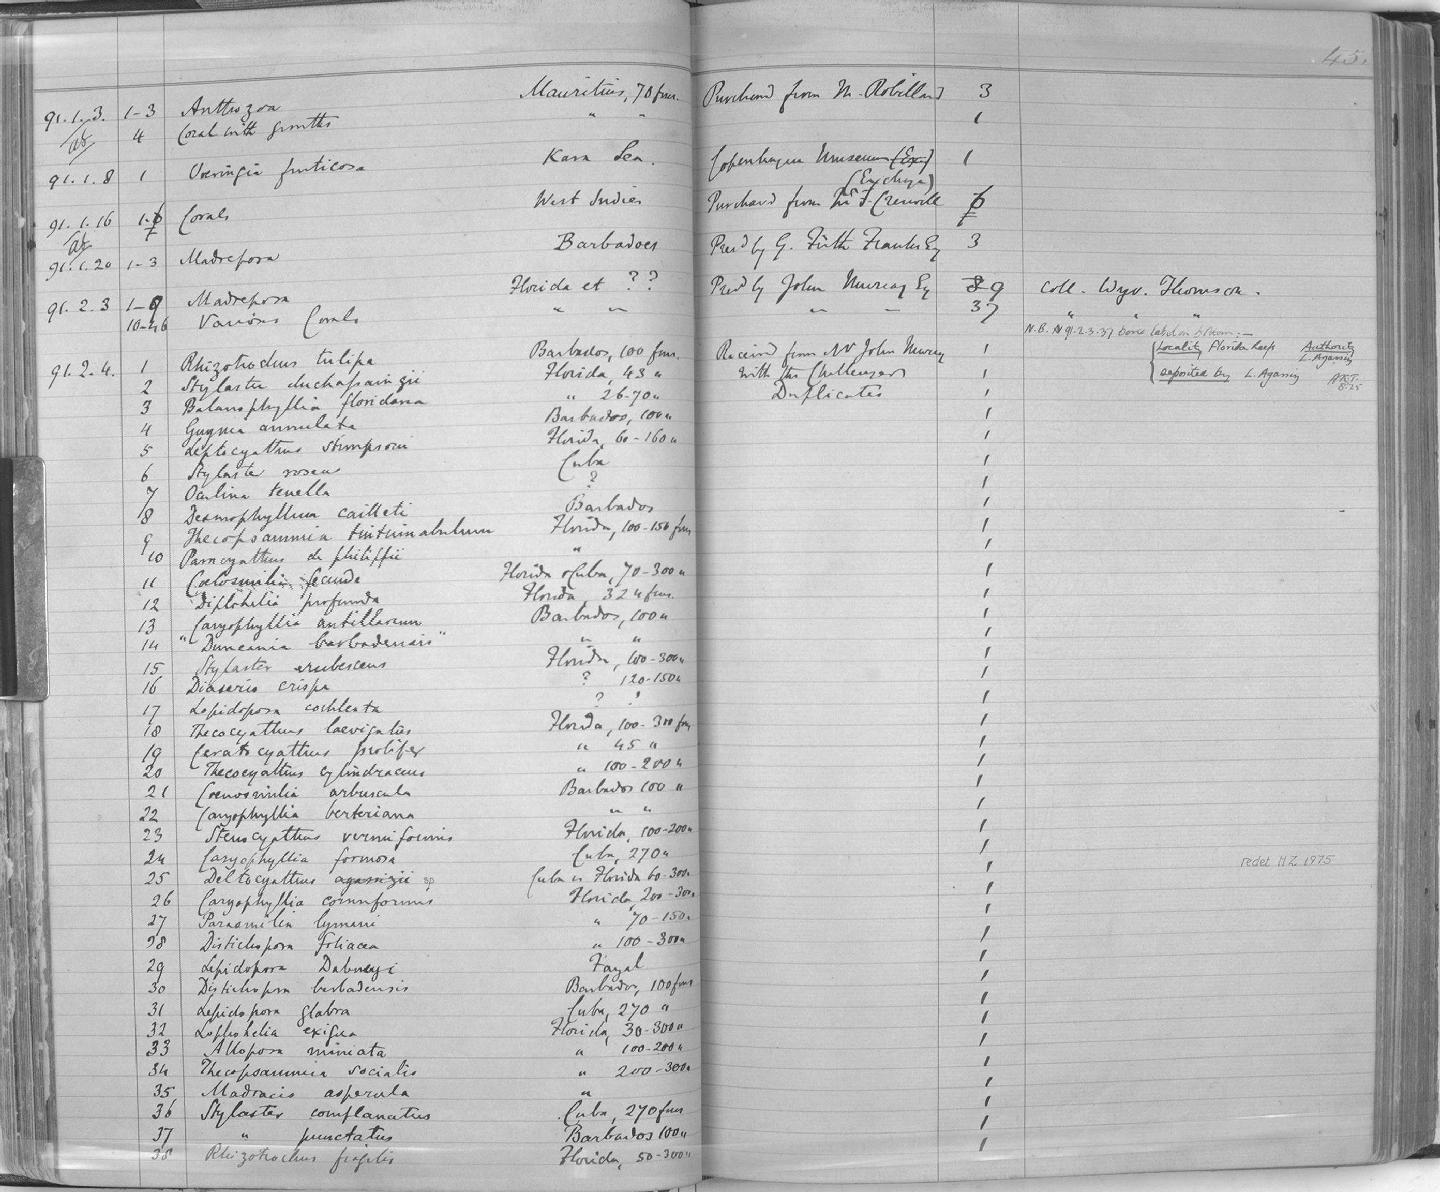 45.
91.1.3. 1-3 Anthozoa Mauritius, 70 fms. Purchased from M. Robillard 3
4 Coral with growths " " 1
91.1.8 1 fruticosa Kara Sea. Copenhagen Museum (Ex.) 1
(Exchge)
91.1.16 1- Corals West Indies Purchased from
91.1.20 1-3 Madrepora Barbados Pres'd by G. Firth Franks Esq 3
91.2.3 1-9 Madrepora Florida et ? ? Pres'd by John Murray Esq 9 Coll. Wyv. Thomson.
10-46 Various Corals " " " " 37 " " "
N.B. N 91.2.3.37 bore label as follows:—
Locality Florida Reef Authority L. Agassiz
deposited by L. Agassiz
91.2.4. 1 Rhizotrochus tulipa Barbados, 100 fms. Received from Mr John Murray 1
2 Stylaster duchassaingii Florida, 43 " with the Challenger 1
3 Balanophyllia floridana " 26-70 " Duplicates 1
4 Guynia annulata Barbados, 100 " 1
5 Leptocyathus stimpsoni Florida, 60-160 " 1
6 Stylaster roseus Cuba 1
7 Oculina tenella ? 1
8 Desmophyllum cailleti Barbados 1
9 Thecopsammia tintinnabulum Florida, 100-150 fms 1
10 Paracyathus de philippii " 1
11 Coelosmilia fecunda Florida & Cuba, 70-300 " 1
12 Diplohelia profunda Florida 324 fms. 1
13 Caryophyllia antillarum Barbados, 100 " 1
14 "Duncania barbadensis" " " 1
15 Stylaster erubescens Florida, 100-300 " 1
16 Diaseris crispa ? 120-150 " 1
17 Lepidopora cochleata ? ? 1
18 Thecocyathus laevigatus Florida, 100-300 fms 1
19 Ceratocyathus prolifer " 45 " 1
20 Thecocyathus cylindraceus " 100-200 " 1
21 Coenosmilia arbuscula Barbados 100 " 1
22 Caryophyllia berteriana " " 1
23 Stenocyathus vermiformis Florida, 100-200 " 1
24 Caryophyllia formosa Cuba, 270 " 1
25 Deltocyathus agassizii sp Cuba or Florida 60-300 " 1 redet HZ 1975
26 Caryophyllia cornuformis Florida 200-300 " 1
27 Parasmilia lymani " 70-150 " 1
28 Distichopora foliacea " 100-300 " 1
29 Lepidopora Dabneyi Fayal 1
30 Distichopora barbadensis Barbados, 100 fms 1
31 Lepidopora glabra Cuba, 270 " 1
32 Lophohelia exigua Florida, 30-300 " 1
33 Allopora miniata " 100-200 " 1
34 Thecopsammia socialis " 200-300 " 1
35 Madracis asperula " 1
36 Stylaster complanatus Cuba, 270 fms 1
37 " punctatus Barbados 100 " 1
38 Rhizotrochus fragilis Florida, 50-300 " 1